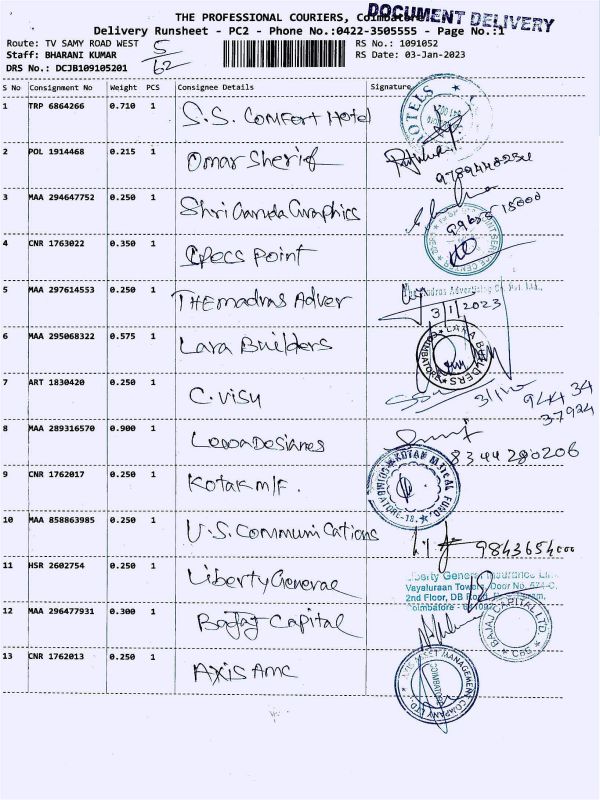 THE PROFESSIONAL COURIERS, Coimbatore
DOCUMENT DELIVERY
Delivery Runsheet - PC2 - Phone No.:0422-3505555 - Page No.:1
Route: TV SAMY ROAD WEST 5/62 RS No.: 1091052
Staff: BHARANI KUMAR RS Date: 03-Jan-2023
DRS No.: DCJB109105201
S No Consignment No Weight PCS Consignee Details Signature
1 TRP 6864266 0.710 1 S.S. Comfort Hotel
2 POL 1914468 0.215 1 Omar Sherif
3 MAA 294647752 0.250 1 Shri Garuda Graphics
4 CNR 1763022 0.350 1 Specs Point
5 MAA 297614553 0.250 1 THE madras Adver
3/1/2023
6 MAA 295068322 0.575 1 Lara Builders
LARA BUILDERS COIMBATORE
7 ART 1830420 0.250 1 C. Visu
94434
37924
8 MAA 289316570 0.900 1
8344280206
9 CNR 1762017 0.250 1 Kotak m/F.
KOTAK MUTUAL FUND, COIMBATORE-18.
10 MAA 858863985 0.250 1 U.S. Communications
11 HSR 2602754 0.250 1 Liberty General
Liberty General Insurance
Vayaluraan Towers, Door No. 574-C,
2nd Floor, DB Road,
Coimbatore -
12 MAA 296477931 0.300 1 Bajaj Capital
BAJAJ CAPITAL LTD. CBS
13 CNR 1762013 0.250 1 Axis Amc
AXIS ASSET MANAGEMENT COMPANY LTD. COIMBATORE